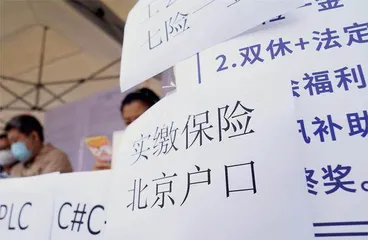 七险
金
2.双休+法定
福利
补助
终奖。
实缴保险
北京户口
PLC
C#C